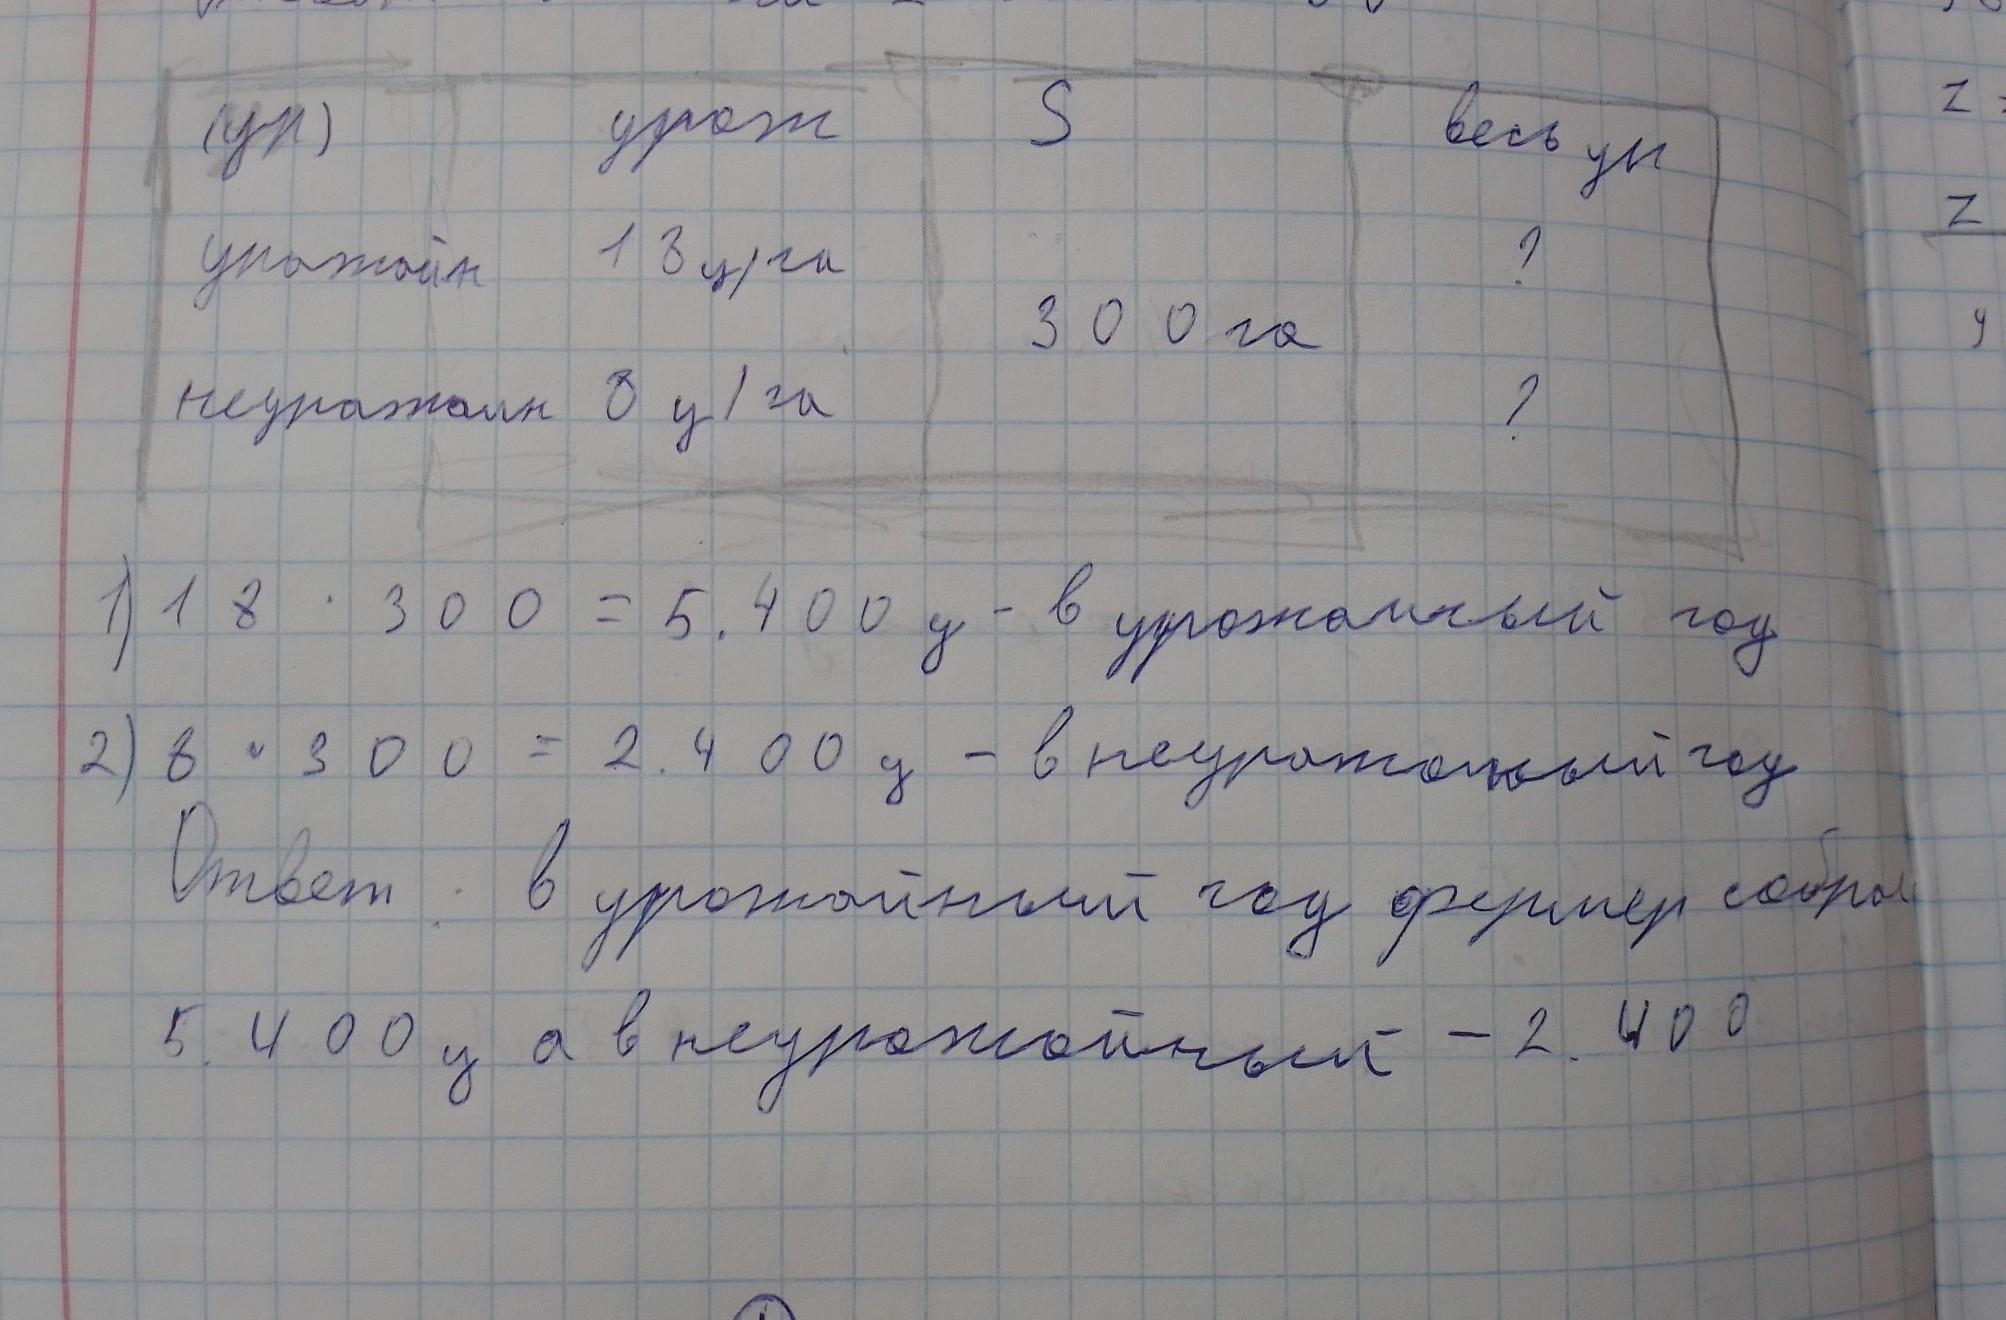 (ур) урож S весь ур
урожайн 18 ц/га ?
300 га
неуражаин 8 ц/га ?
1) 18 · 300 = 5.400 ц - в урожаиный год
2) 8 · 300 = 2.400 ц - в неурожаиный год
Ответ: в урожайный год фермер собрал
5.400 ц а в неурожайный - 2.400
z =
z
y